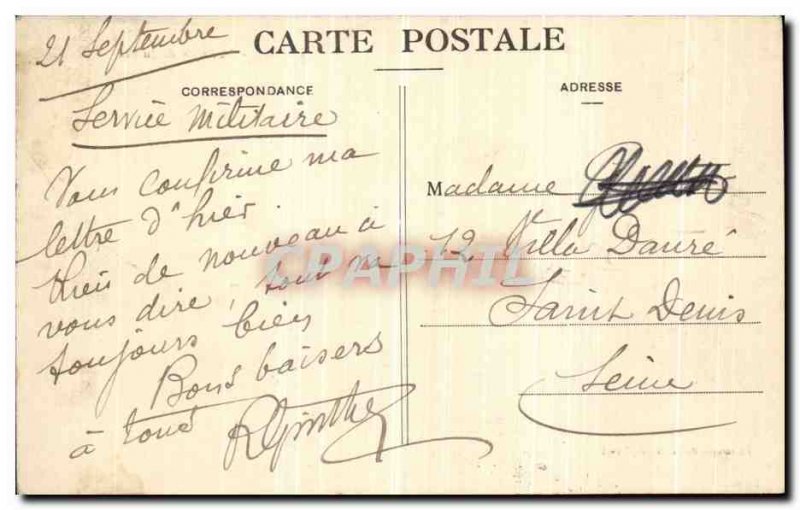 21 Septembre
CARTE POSTALE
CORRESPONDANCE
Service Militaire
Vous confirme ma
lettre d'hier.
Rien de nouveau à
vous dire, tout va
toujours bien
Bons baisers
à tous
ADRESSE
Madame
12 Villa Dauré
Saint Denis
Seine
CPAPHIL